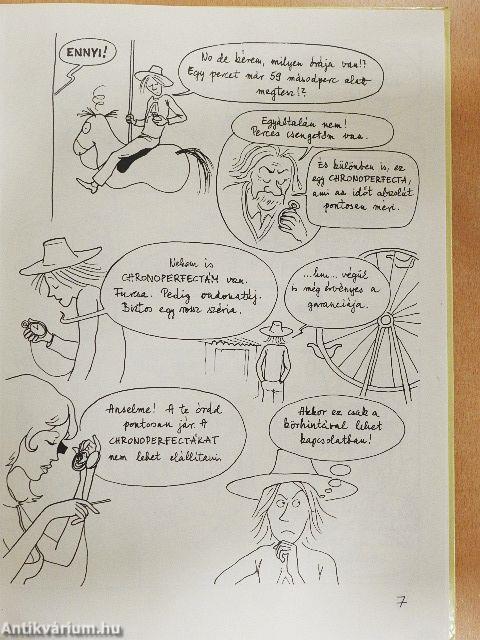 ENNYI!
No de kérem, milyen órája van!?
Egy percet már 59 másodperc alatt
megtesz!?
Egyáltalán nem!
Perces csengetőm van.
És különben is, ez
egy CHRONOPERFECTA,
ami az időt abszolút
pontosan méri.
Nekem is
CHRONOPERFECTÁM van.
Furcsa. Pedig vadonatúj.
Biztos egy rossz széria.
...hm... végül
is még érvényes a
garanciája.
Anselme! A te órád
pontosan jár. A
CHRONOPERFECTÁKAT
nem lehet elállítani.
Akkor ez csak a
körhintával lehet
kapcsolatban!
7
Antikvárium.hu